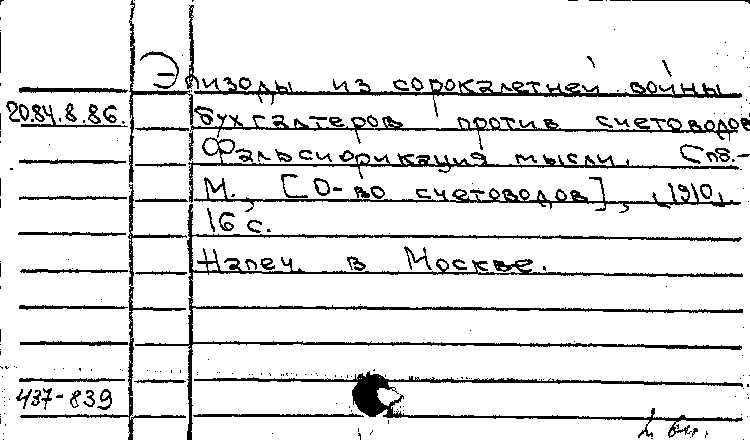 Эпизоды из сорокалетней войны
2084.8.86. бухгалтеров против счетоводов
Фальсификация мысли. Спб.-
М., [О-во счетоводов], 1910.
16 с.
Напеч. в Москве.
437-839